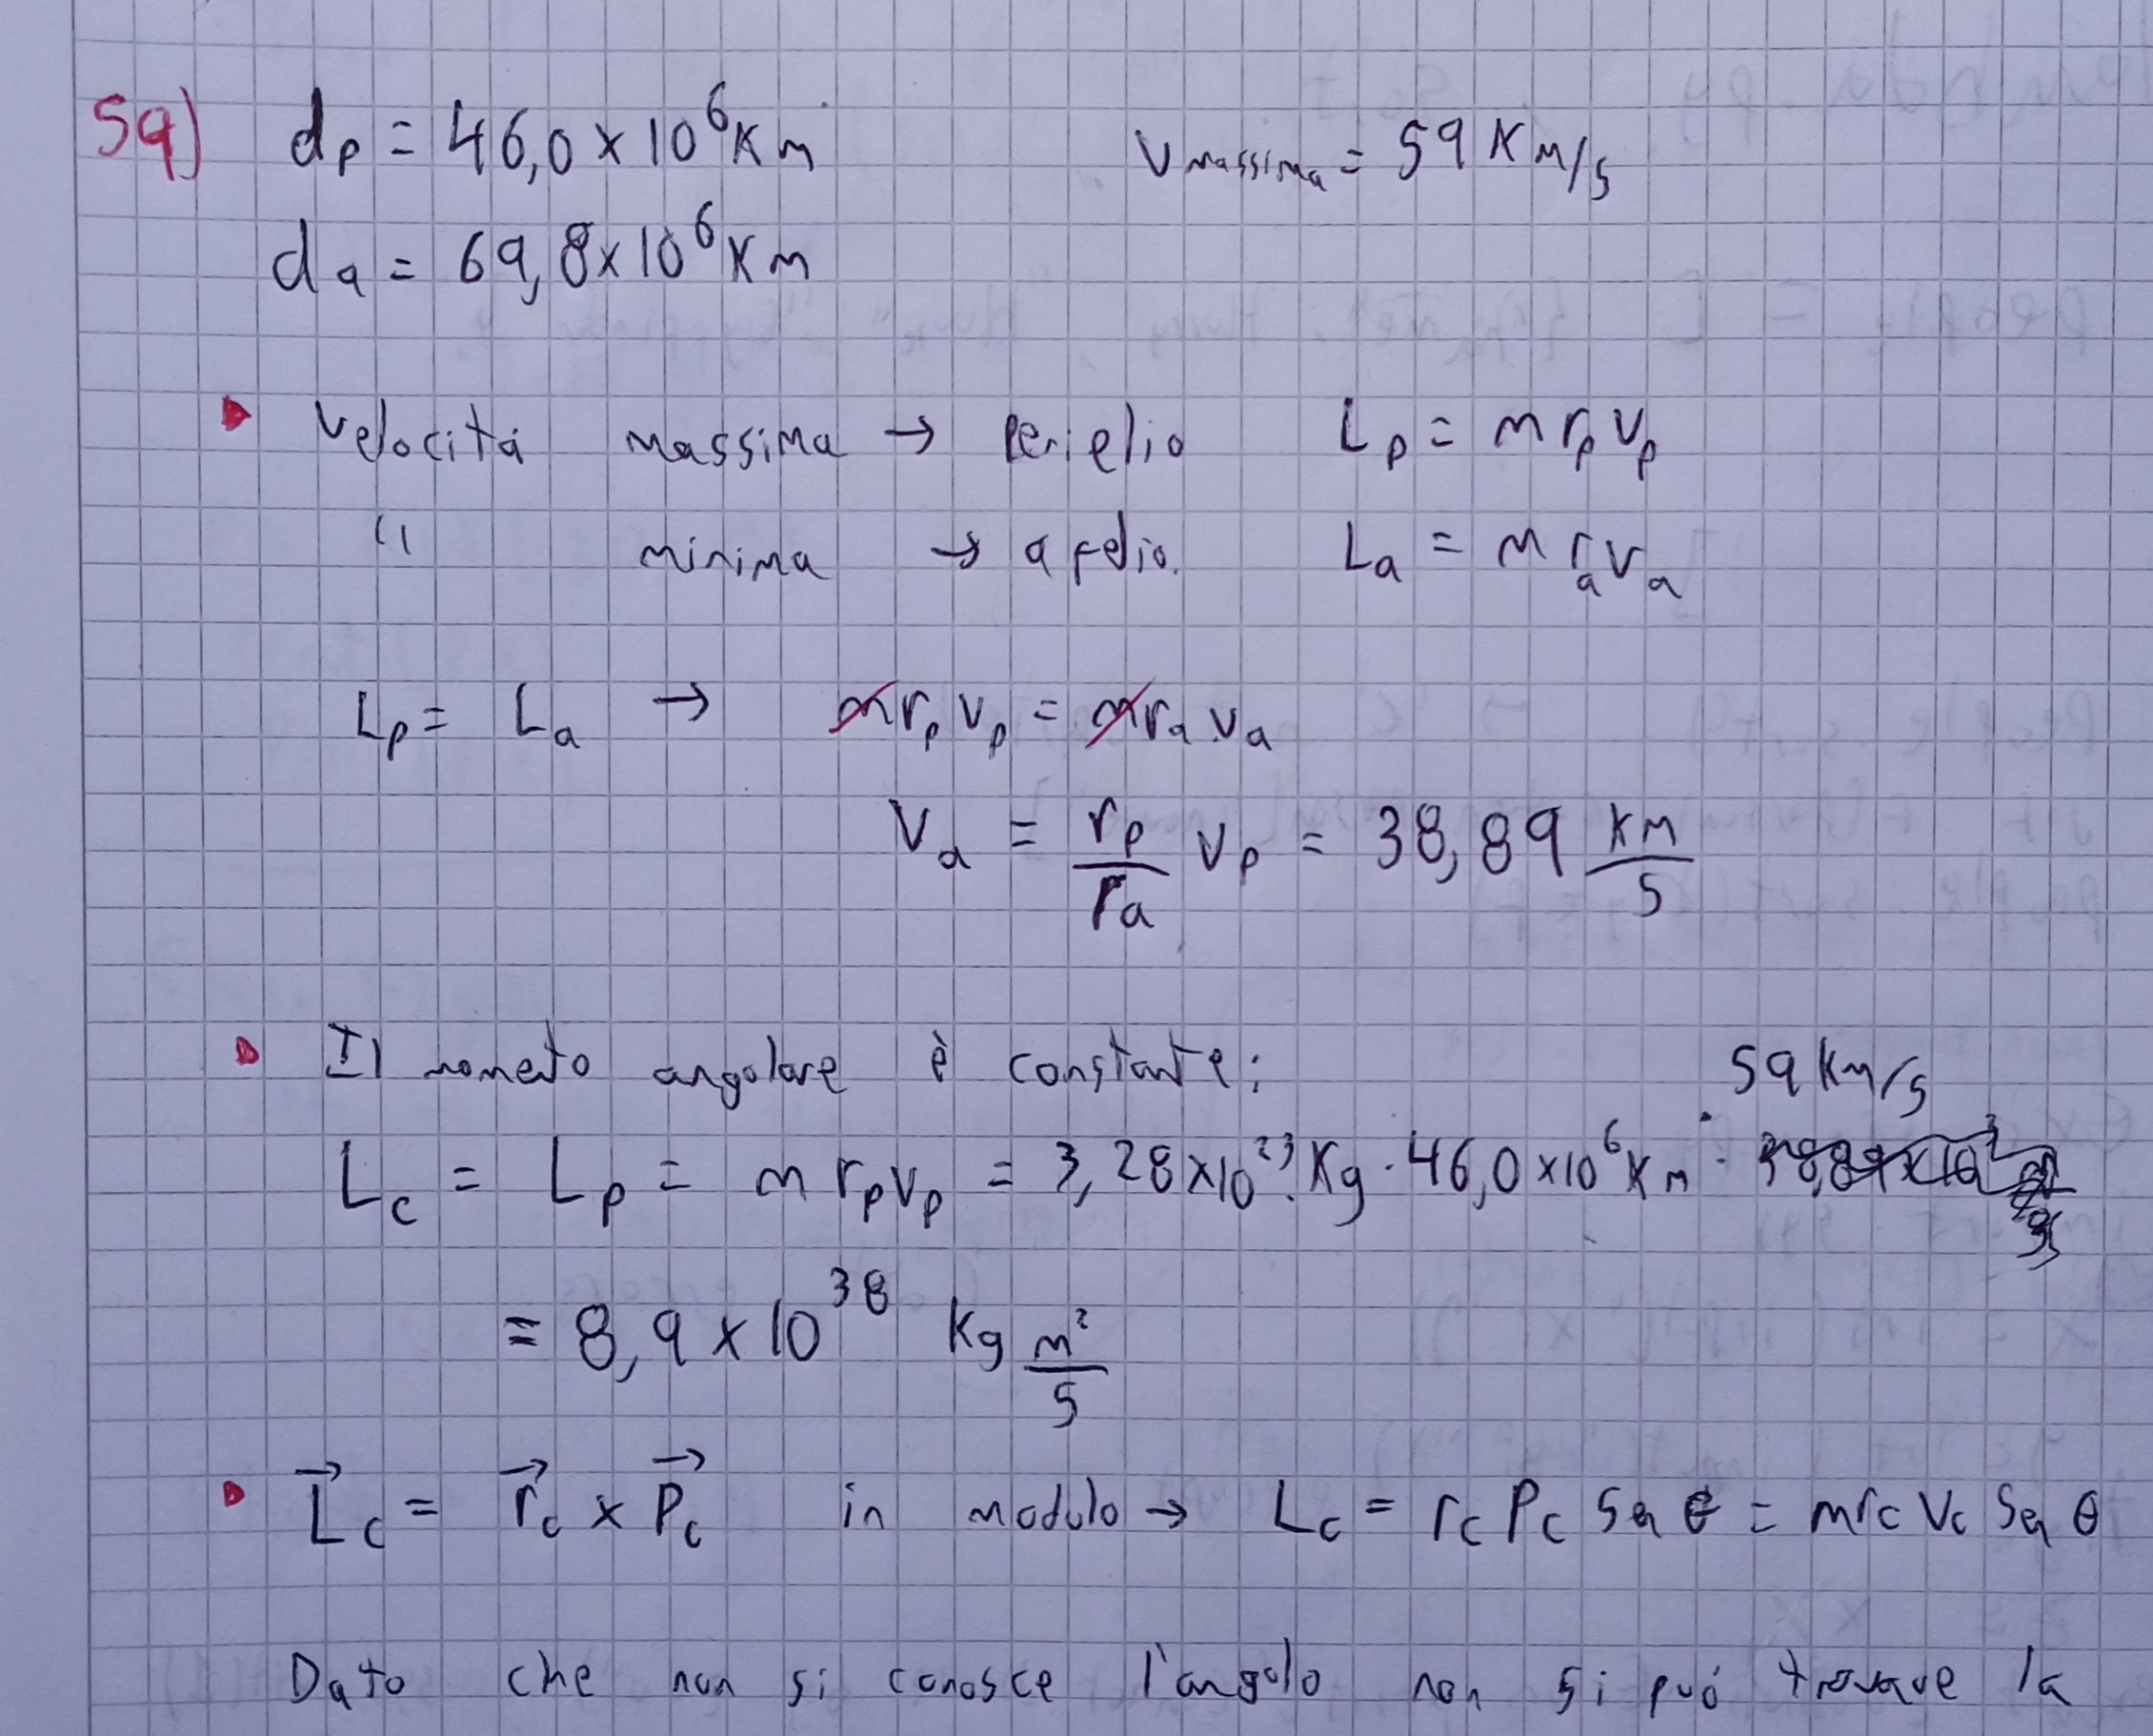 59) dp = 46,0 × 10⁶ Km Vmassima = 59 Km/s
da = 69,8 × 10⁶ Km
Velocitá massima → perielio Lp = m rp vp
" minima → afelio. La = m ra va
Lp = La → m rp vp = m ra va
Va = rp/ra vp = 38,89 Km/s
Il momento angolare è constante:
59 Km/s
Lc = Lp = m rp vp = 3,28 × 10²³ Kg · 46,0 × 10⁶ Km ·
= 8,9 × 10³⁸ Kg m²/s
L⃗c = r⃗c × P⃗c in modulo → Lc = rc Pc Sen θ = m rc Vc Sen θ
Dato che non si conosce l'angolo non si puó trovare la